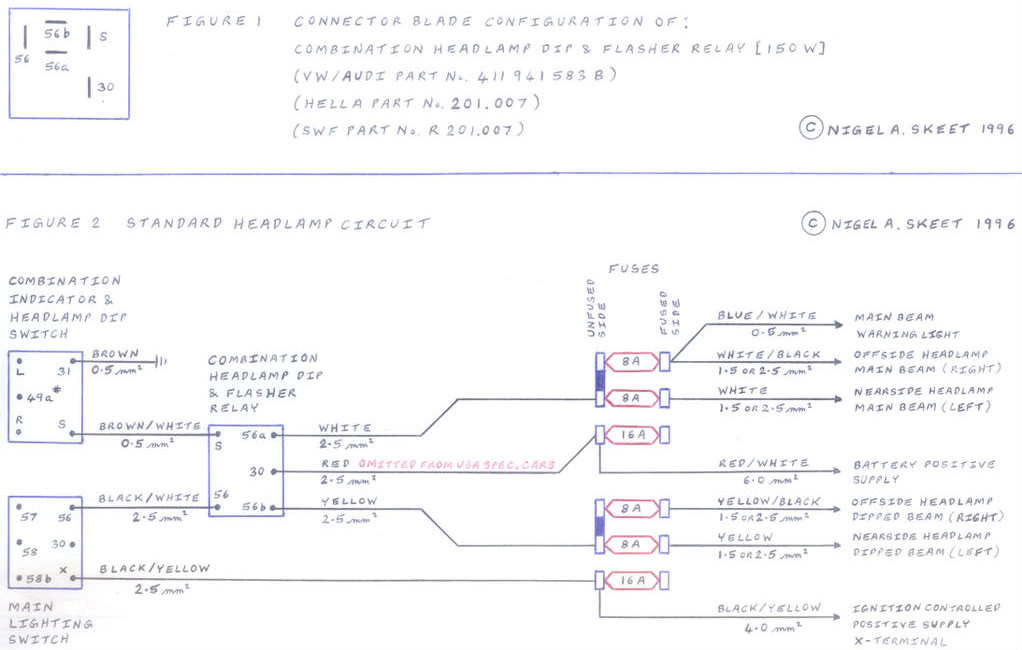 FIGURE 1 CONNECTOR BLADE CONFIGURATION OF:
COMBINATION HEADLAMP DIP & FLASHER RELAY [150 W]
(VW/AUDI PART No. 411 941 583 B)
(HELLA PART No. 201.007)
(SWF PART No. R 201.007)
© NIGEL A. SKEET 1996
56
56b
56a
S
30
FIGURE 2 STANDARD HEADLAMP CIRCUIT
© NIGEL A. SKEET 1996
COMBINATION
INDICATOR &
HEADLAMP DIP
SWITCH
L
31
49a#
R
S
BROWN
0.5 mm²
BROWN/WHITE
0.5 mm²
COMBINATION
HEADLAMP DIP
& FLASHER
RELAY
S
56a
30
56
56b
BLACK/WHITE
2.5 mm²
57
56
58
30
58b
X
BLACK/YELLOW
2.5 mm²
MAIN
LIGHTING
SWITCH
WHITE
2.5 mm²
RED OMITTED FROM USA SPEC. CARS
2.5 mm²
YELLOW
2.5 mm²
FUSES
UNFUSED
SIDE
FUSED
SIDE
8A
8A
16A
8A
8A
16A
BLUE/WHITE
0.5 mm²
MAIN BEAM
WARNING LIGHT
WHITE/BLACK
1.5 OR 2.5 mm²
OFFSIDE HEADLAMP
MAIN BEAM (RIGHT)
WHITE
1.5 OR 2.5 mm²
NEARSIDE HEADLAMP
MAIN BEAM (LEFT)
RED/WHITE
6.0 mm²
BATTERY POSITIVE
SUPPLY
YELLOW/BLACK
1.5 OR 2.5 mm²
OFFSIDE HEADLAMP
DIPPED BEAM (RIGHT)
YELLOW
1.5 OR 2.5 mm²
NEARSIDE HEADLAMP
DIPPED BEAM (LEFT)
BLACK/YELLOW
4.0 mm²
IGNITION CONTROLLED
POSITIVE SUPPLY
X-TERMINAL